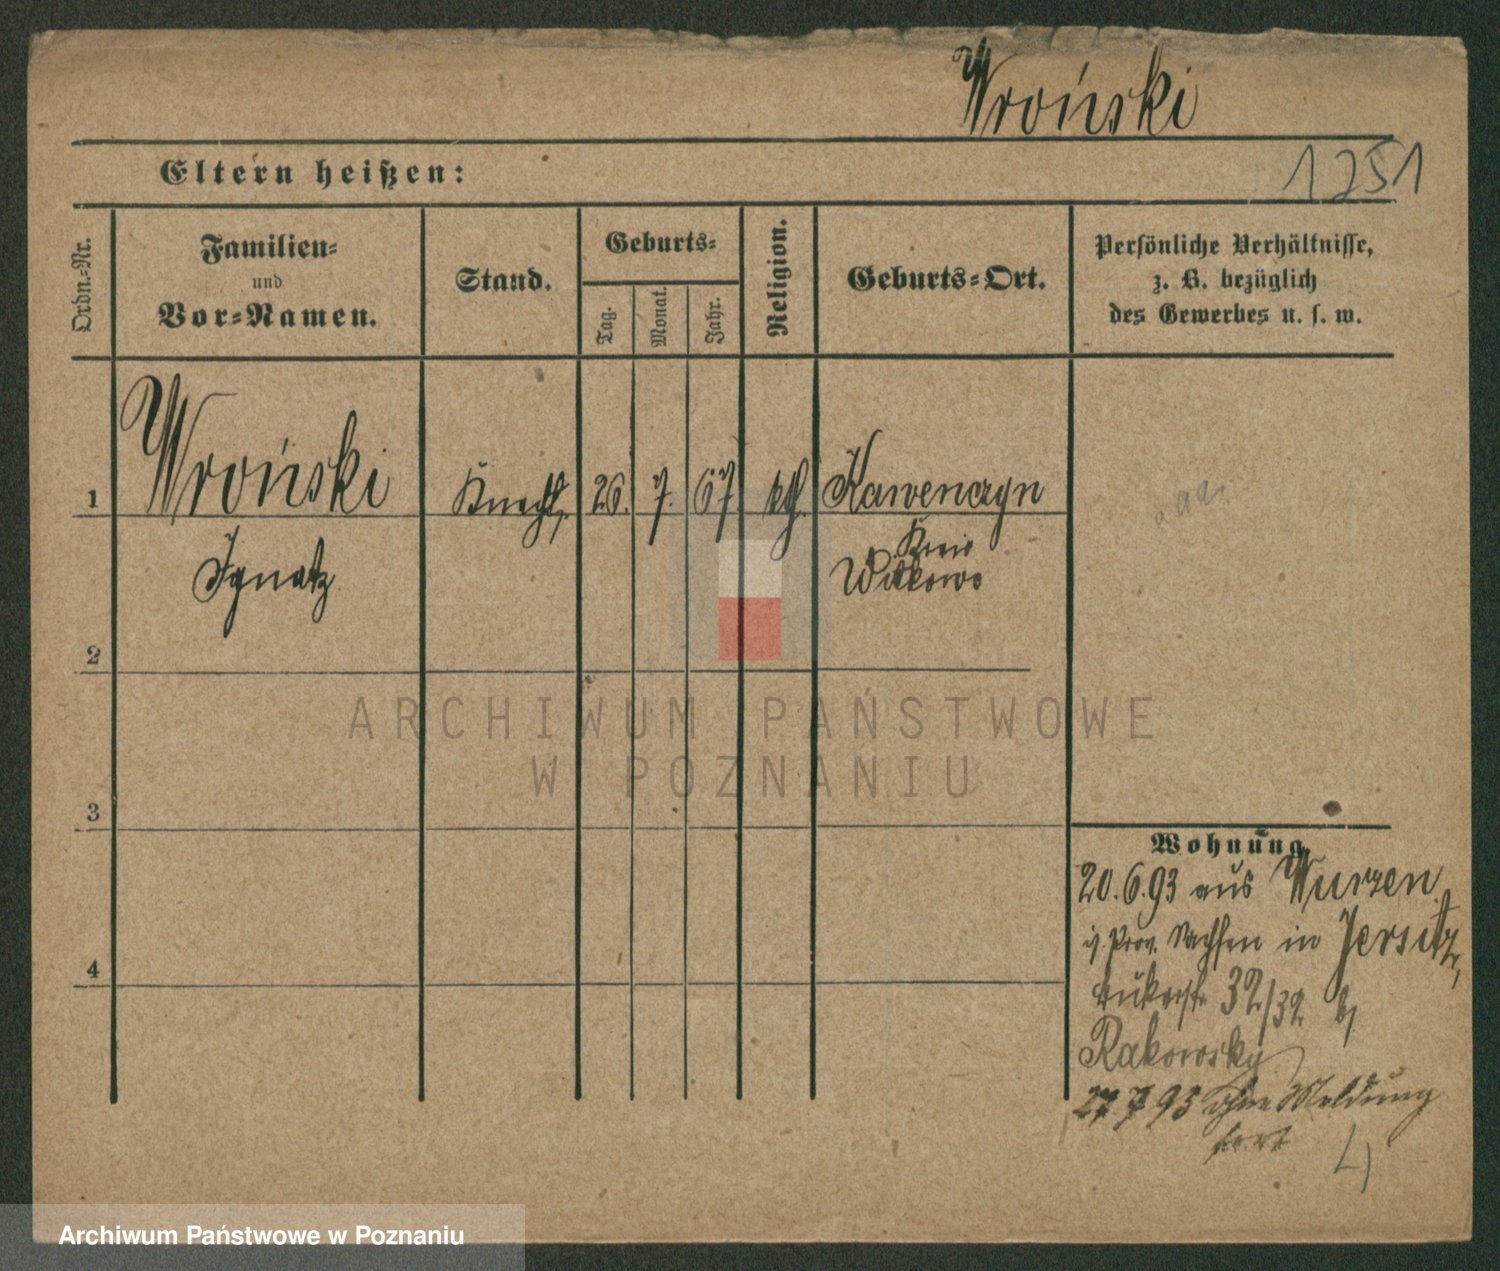 Wroński
Eltern heißen:
1251
Ordn.-Nr.
Familien-
und
Vor-Namen.
Stand.
Geburts-
Tag.
Monat.
Jahr.
Religion.
Geburts-Ort.
Persönliche Verhältnisse,
z. B. bezüglich
des Gewerbes u. s. w.
1
Wroński
Knecht,
26.
7.
67
kth.
Kawenczyn
Kreis
Ignatz
Witkowo
2
3
4
Wohnung
20.6.93 aus Wurzen
i/. Prov. Sachsen in Jersitz,
32/32 b/
Rakowsky
27 7 93 Ohne Meldung
fort
ARCHIWUM PAŃSTWOWE
W POZNANIU
Archiwum Państwowe w Poznaniu